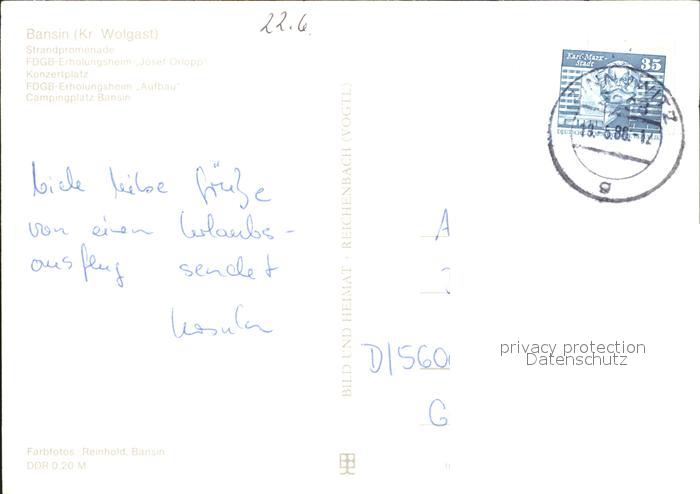 22.6.
Bansin (Kr. Wolgast)
Strandpromenade
FDGB-Erholungsheim „Josef Orlopp"
Konzertplatz
FDGB-Erholungsheim „Aufbau"
Campingplatz Bansin
Karl-Marx-Stadt
35
viele liebe Grüße
von einem Urlaubs-
ausflug sendet
Ursula
BILD UND HEIMAT · REICHENBACH (VOGTL)
A
D/560
G
privacy protection
Datenschutz
Farbfotos Reinhold, Bansin
DDR 0,20 M